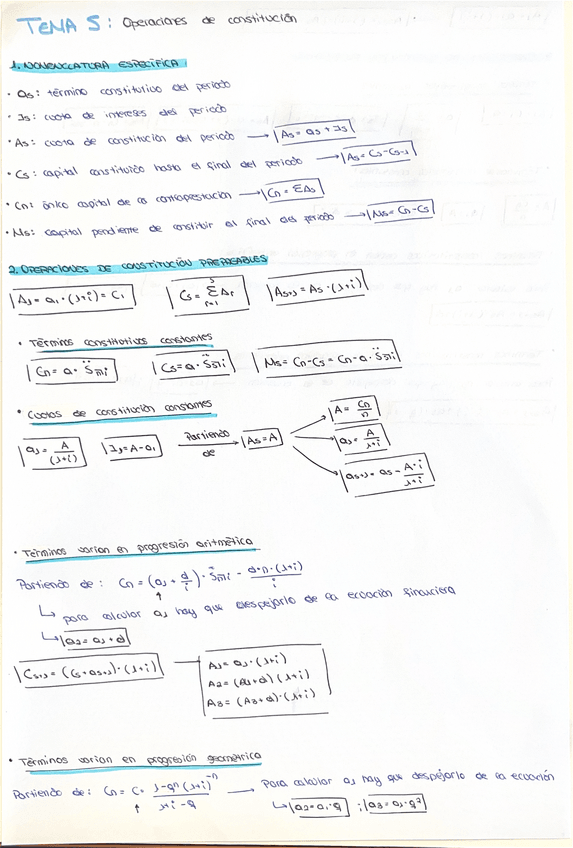 TEMA 5: Operaciones de constitución
1. NOMENCLATURA ESPECÍFICA:
· as: término constitutivo del periodo
· Is: cuota de intereses del periodo
· As: cuota de constitución del periodo → As = as + Is
· Cs: capital constituido hasta el final del periodo → As = Cs - Cs-1
· Cn: único capital de la contraprestación → Cn = ΣAs
· Ms: capital pendiente de constituir al final del periodo → Ms = Cn - Cs
2. OPERACIONES DE CONSTITUCIÓN PREPAGABLES
A1 = a1 · (1+i) = C1 Cs = Σ Ar As+1 = As · (1+i)
· Términos constitutivos constantes
Cn = a · S̈n¬i Cs = a · S̈s¬i Ms = Cn - Cs = Cn - a · S̈s¬i
· Cuotas de constitución constantes
a1 = A/(1+i) I1 = A - a1 Partiendo de → As = A A = Cn/n
a1 = A/1+i
as+1 = as - A·i/1+i
· Términos varían en progresión aritmética
Partiendo de: Cn = (a1 + d/i) · S̈n¬i - d·n·(1+i)/i
↳ para calcular a1 hay que despejarlo de la ecuación financiera
↳ a2 = a1 + d
Cs+1 = (Cs + as+1) · (1+i) A1 = a1 · (1+i)
A2 = (A1+d) · (1+i)
A3 = (A2+d) · (1+i)
· Términos varían en progresión geométrica
Partiendo de: Cn = C · 1-qⁿ (1+i)⁻ⁿ / 1+i-q → Para calcular a1 hay que despejarlo de la ecuación
↳ a2 = a1·q ; a3 = a1·q²